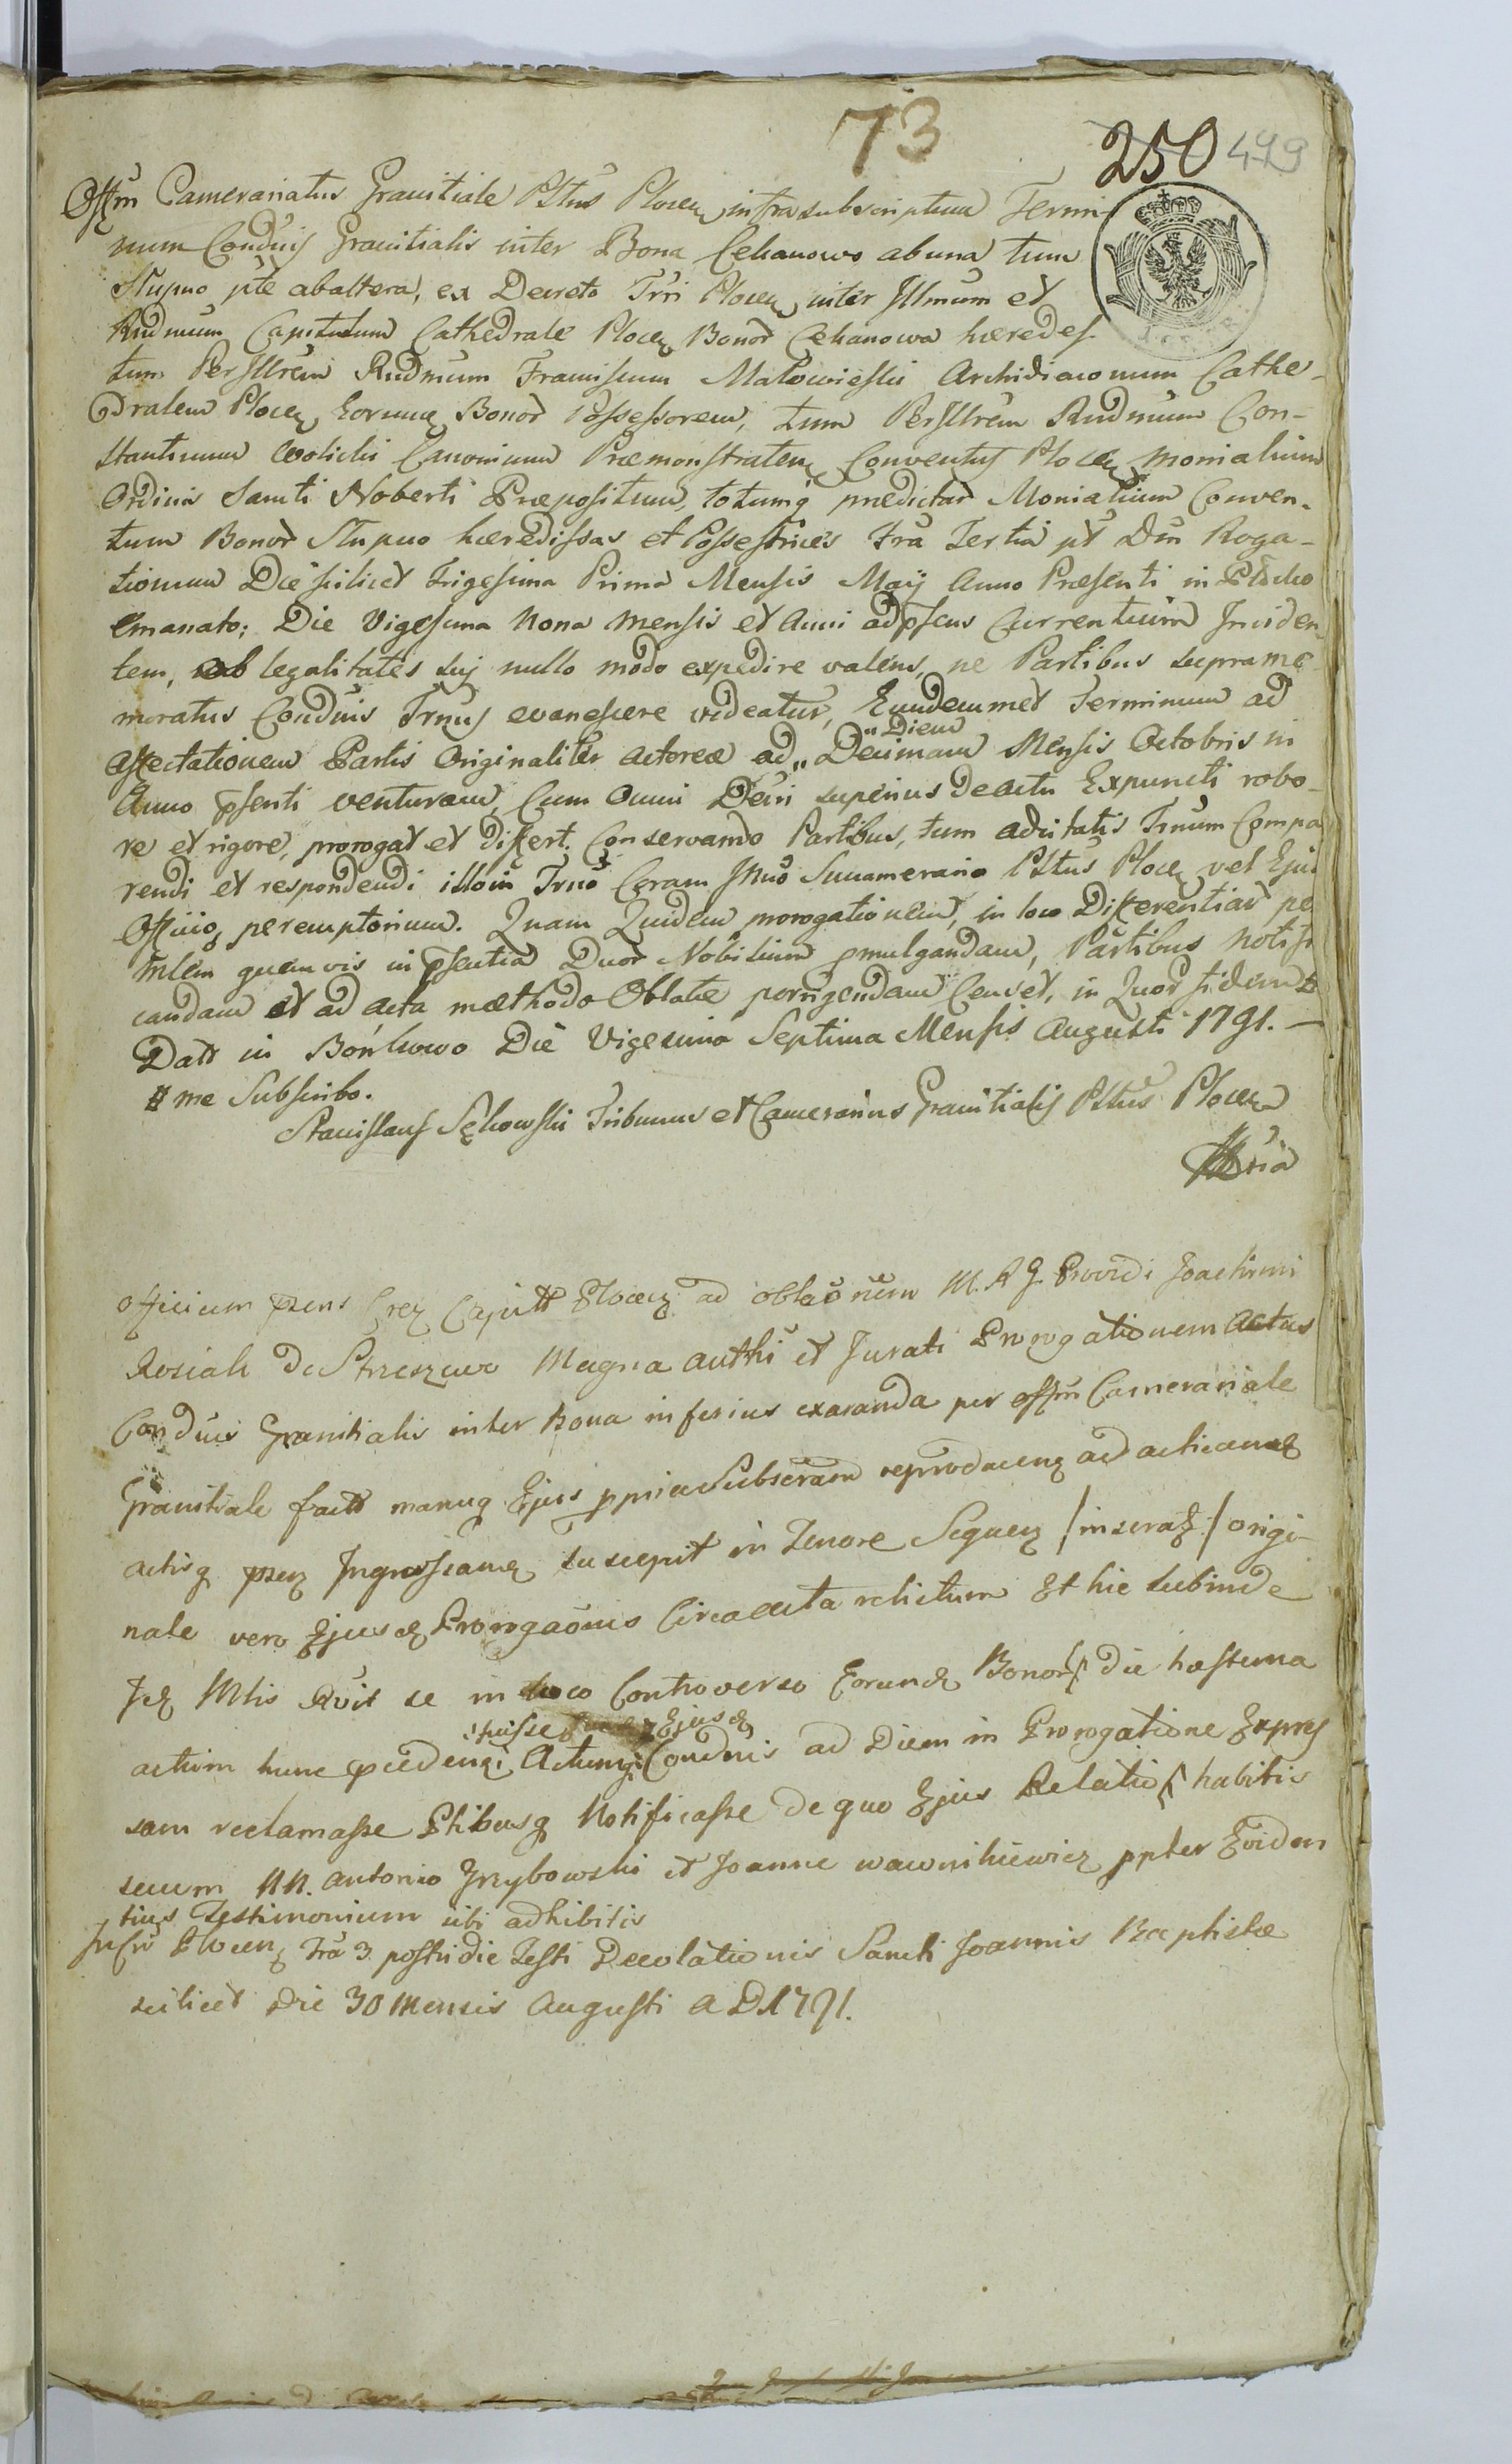 73
250 499
Offm Camerariatus Granitiale Pltus Plocen infrasubscriptum Termi-
num Condnis Granitialis inter Bona Cekanowo ab una tum
Słupno pte ab altera, ex Decreto Trri Plocen inter Illmum et
Rndmum Capitulum Cathedrale Plocen Bonor Cekanowa hæredes
tum PerIllrem Rndmum Franciscum Matowieski Archidiaconum Cathe-
dralem Plocen Eorumq Bonor Possessorem, tum PerIllrem Rndmum Con-
stantinum Wolicki Canonicum Præmonstraten Conventus Plocen Monialium
Ordinis Sancti Noberti Præpositum, totumq predictar Monialium Conven-
tum Bonor Słupno hæredissas et Possestrices Fra Tertia pt Dm Roga-
tionum Die scilicet Trigesima Prima Mensis Maij Anno Præsenti in Płocko
emanato; Die Vigesima Nona Mensis et Anni adpsens Currentium Inciden
tem, ob legalitates suj nullo modo expedire valens, ne Partibus suprame
moratus Condnis Trnus evanescere videatur, Eundemmet Terminum ad
affectationem Partis Originaliter Actoreæ ad „ Diem Decimam Mensis Octobris in
Anno psenti venturam, Cum Omni Decri superius de actu Expuncti robo-
re et rigore, prorogat et differt. Conservando Partibus, tum adcitatis Trnum Compa
rendi et respondendi illoin Trno Coram Mno Succamerario Pltus Plocen vel Ejus
Officio, peremptorium. Quam Quidem prorogationem, in loco Differentiar pe
Mlem quemvis in psentia Duor Nobilium pmulgandam, Partibus notifi
candam et ad acta mæthodo Oblatæ porrigendam Censet, in Quor fidem
Datt in Bońkowo Die Vigesima Septima Mensis Augusti 1791. —
me Subscribo.
Stanislaus Sękowski Tribunus et Camerarius Granitialis Pltus Plocen
Mria
Officium psens Cren Capitt Plocen ad oblaonem M. R J. Providi Joachimi
Roziak de Strzeszewo Magna Authi et Jurati Prorogationem Actus
Condnis Granitialis inter Bona inferius exaranda per offm Camerariale
Granitiale factt manuq Ejus ppria Subscram reproducens ad acticandq
actisq psen Ingrossandq suscepit in Tenore Sequen /inseratq/ origi-
nale vero Ejusdq Prorogaonis Circa acta relictum Et hic subinde
Idq Mlis Rvit se in loco Controverso Eorundq Bonor die hæsterna
actum hunc pcedenq fuisse Actumq Ejusdq Condnis ad Diem in Prorogatione Expres
sam reclamasse Ptibusq Notificasse de quo Ejus Relatio habitis
secum NN. Antonio Grzybowski et Joanne Wawrikiewicz ppter Eviden
tius Testimonium sibi adhibitis
Fra 3 postridie Festi Decolationis Sancti Joannis Baptistæ
scilicet Die 30 Mensis Augusti A D 1791.